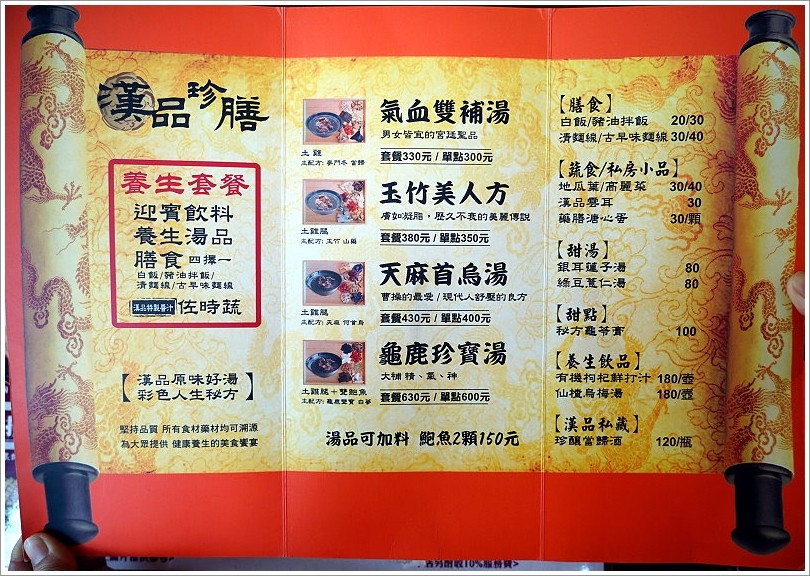 漢品珍膳
養生套餐
迎賓飲料
養生湯品
膳食 四擇一
白飯/豬油拌飯/
清麵線/古早味麵線
漢品特製醬汁 佐時蔬
【漢品原味好湯
彩色人生秘方】
堅持品質 所有食材藥材均可溯源
為大眾提供 健康養生的美食饗宴
氣血雙補湯
男女皆宜的宮廷聖品
土雞
主配方: 麥門冬 當歸
套餐330元 / 單點300元
玉竹美人方
膚如凝脂，歷久不衰的美麗傳說
土雞腿
主配方: 玉竹 山藥
套餐380元 / 單點350元
天麻首烏湯
曹操的最愛/現代人舒壓的良方
土雞腿
主配方: 天麻 何首烏
套餐430元 / 單點400元
龜鹿珍寶湯
大補 精、氣、神
土雞腿+雙鮑魚
主配方: 龜鹿雙寶 白蔘
套餐630元 / 單點600元
湯品可加料 鮑魚2顆150元
【膳食】
白飯/豬油拌飯 20/30
清麵線/古早味麵線 30/40
【蔬食/私房小品】
地瓜葉/高麗菜 30/40
漢品雲耳 30
藥膳溏心蛋 30/顆
【甜湯】
銀耳蓮子湯 80
綠豆薏仁湯 80
【甜點】
秘方龜苓膏 100
【養生飲品】
有機枸杞鮮打汁 180/壺
仙楂烏梅湯 180/壺
【漢品私藏】
珍釀當歸酒 120/瓶